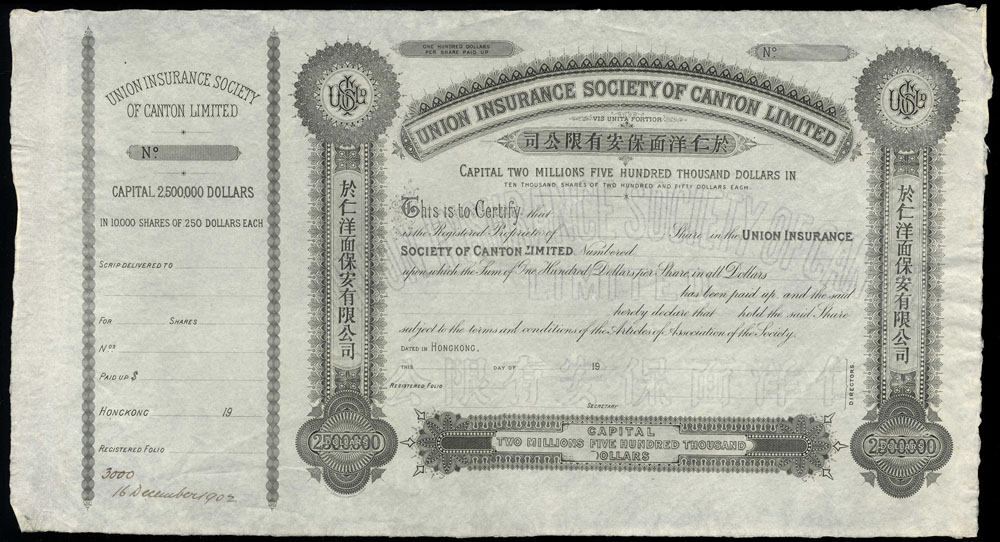 UNION INSURANCE SOCIETY
OF CANTON LIMITED
No.
CAPITAL 2,500,000 DOLLARS
IN 10,000 SHARES OF 250 DOLLARS EACH
SCRIP DELIVERED TO
FOR SHARES
Nos
PAID UP $
HONGKONG 19
REGISTERED FOLIO
3000
16 December 1902
ONE HUNDRED DOLLARS
PER SHARE PAID UP
No.
UNION INSURANCE SOCIETY OF CANTON LIMITED
VIS UNITA FORTIOR
於仁洋面保安有限公司
CAPITAL TWO MILLIONS FIVE HUNDRED THOUSAND DOLLARS IN
TEN THOUSAND SHARES OF TWO HUNDRED AND FIFTY DOLLARS EACH.
This is to Certify that
is the Registered Proprietor of Share in the UNION INSURANCE
SOCIETY OF CANTON LIMITED Numbered
upon which the Sum of One Hundred Dollars per Share, in all Dollars
has been paid up and the said
hereby declare that hold the said Share
subject to the terms and conditions of the Articles of Association of the Society.
DATED IN HONGKONG.
THIS DAY OF 19
REGISTERED FOLIO
SECRETARY
DIRECTORS
於仁洋面保安有限公司
於仁洋面保安有限公司
2500000
CAPITAL
TWO MILLIONS FIVE HUNDRED THOUSAND
DOLLARS
2500000